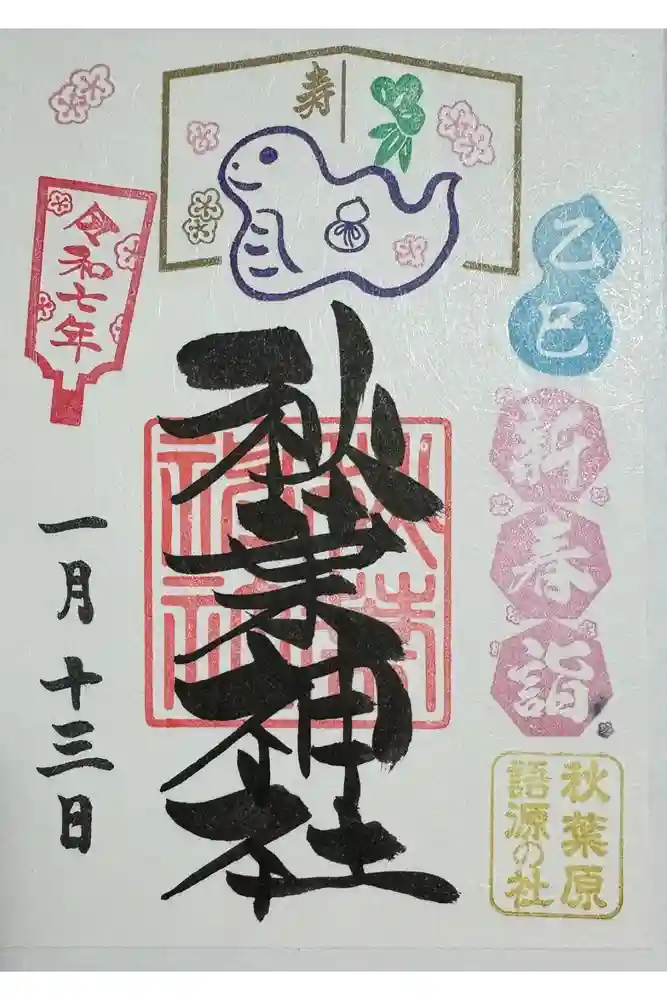 寿
乙巳
新春詣
秋葉原
語源の社
秋葉神社
秋葉
神社
令和七年
一月十三日